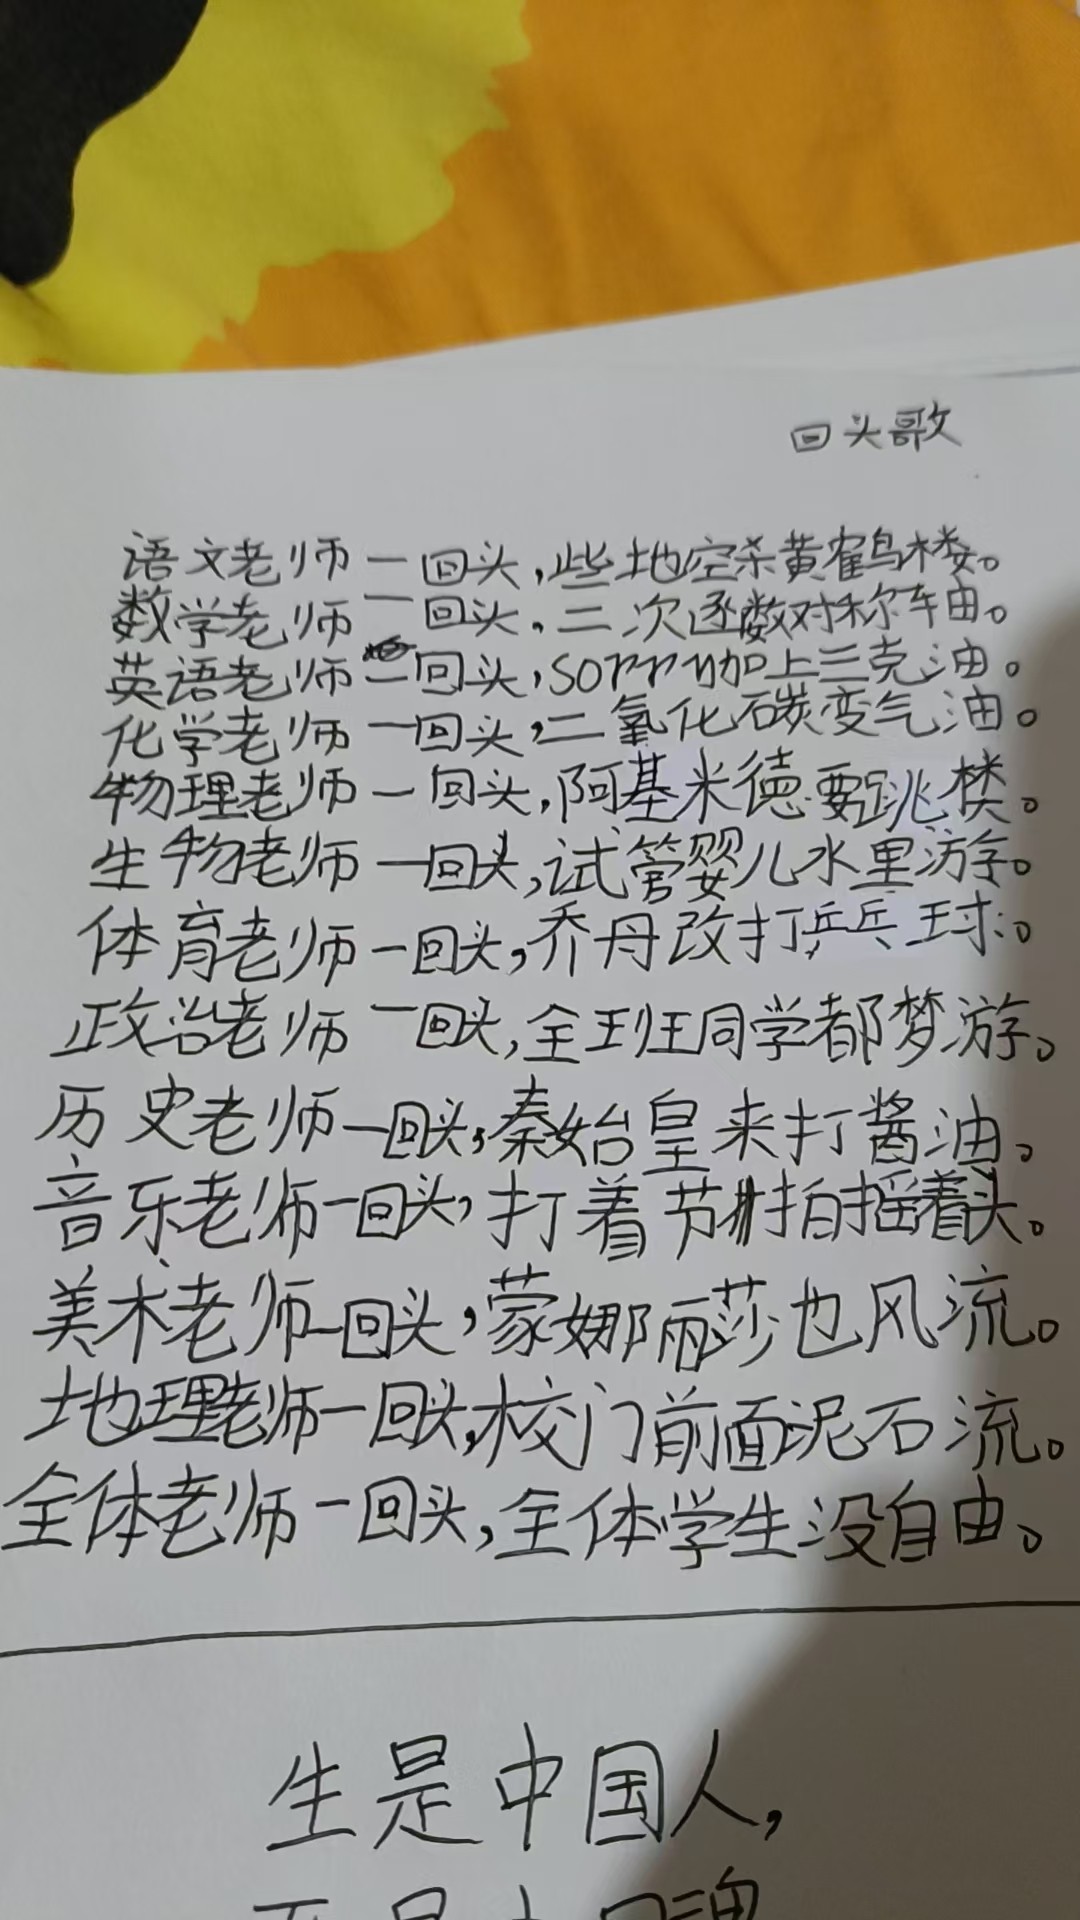 回头歌
语文老师一回头,些地空杀黄鹤楼。
数学老师一回头,二次逐数对称车由。
英语老师一回头,sorry加上三克油。
化学老师一回头,二氧化碳变气油。
物理老师一回头,阿基米德要跳楼。
生物老师一回头,试管婴儿水里游。
体育老师一回头,乔丹改打乒乓球。
政治老师一回头,全班同学都梦游。
历史老师一回头,秦始皇来打酱油。
音乐老师一回头,打着节拍摇着头。
美术老师一回头,蒙娜丽莎也风流。
地理老师一回头,校门前面泥石流。
全体老师一回头,全体学生没自由。
生是中国人,